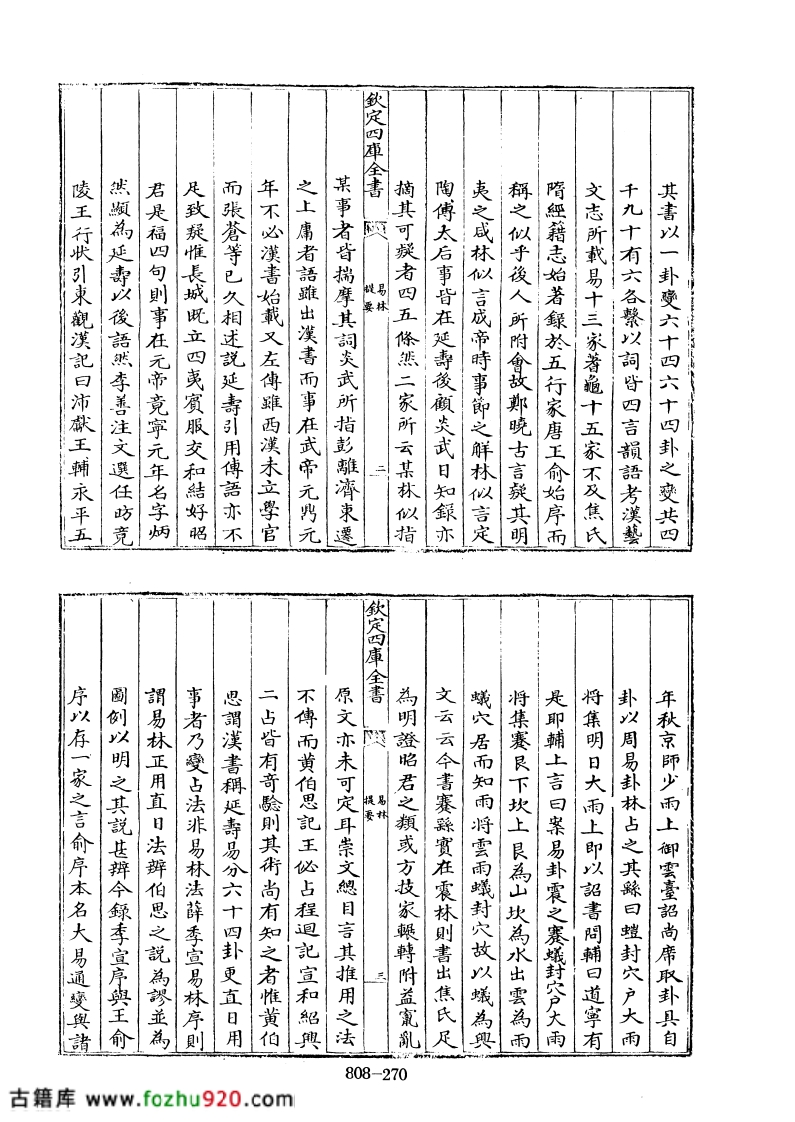 其書以一卦變六十四六十四卦之變共四
千九十有六各繫以詞皆四言韻語考漢藝
文志所載易十三家蓍龜十五家不及焦氏
隋經籍志始著錄於五行家唐王俞始序而
稱之似乎後人所附會故鄭曉古言疑其明
夷之咸林似言成帝時事節之解林似言定
陶傅太后事皆在延壽後顧炎武日知錄亦
摘其可疑者四五條然二家所云某林似指
欽定四庫全書
易林
提要
二
某事者皆揣摩其詞炎武所指彭離濟東遷
之上庸者語雖出漢書而事在武帝元鼎元
年不必漢書始載又左傳雖西漢未立學官
而張蒼等已久相述說延壽引用傳語亦不
足致疑惟長城既立四夷賓服交和結好昭
君是福四句則事在元帝竟寧元年名字炳
然顯為延壽以後語然李善注文選任昉竟
陵王行狀引東觀漢記曰沛獻王輔永平五
年秋京師少雨上御雲臺詔尚席取卦具自
卦以周易卦林占之其繇曰螘封穴戶大雨
將集明日大雨上即以詔書問輔曰道寧有
是耶輔上言曰案易卦震之蹇蟻封穴戶大雨
將集蹇艮下坎上艮為山坎為水出雲為雨
蟻穴居而知雨將雲雨蟻封穴故以蟻為興
文云云今書蹇繇實在震林則書出焦氏足
為明證昭君之類或方技家輾轉附益竄亂
欽定四庫全書
易林
提要
三
原文亦未可定耳崇文總目言其推用之法
不傳而黃伯思記王佖占程迥記宣和紹興
二占皆有奇驗則其術尚有知之者惟黃伯
思謂漢書稱延壽易分六十四卦更直日用
事者乃變占法非易林法薛季宣易林序則
謂易林正用直日法辨伯思之說為謬並為
圖例以明之其說甚辨今錄季宣序與王俞
序以存一家之言俞序本名大易通變與諸
808-270
古籍库 www.fozhu920.com